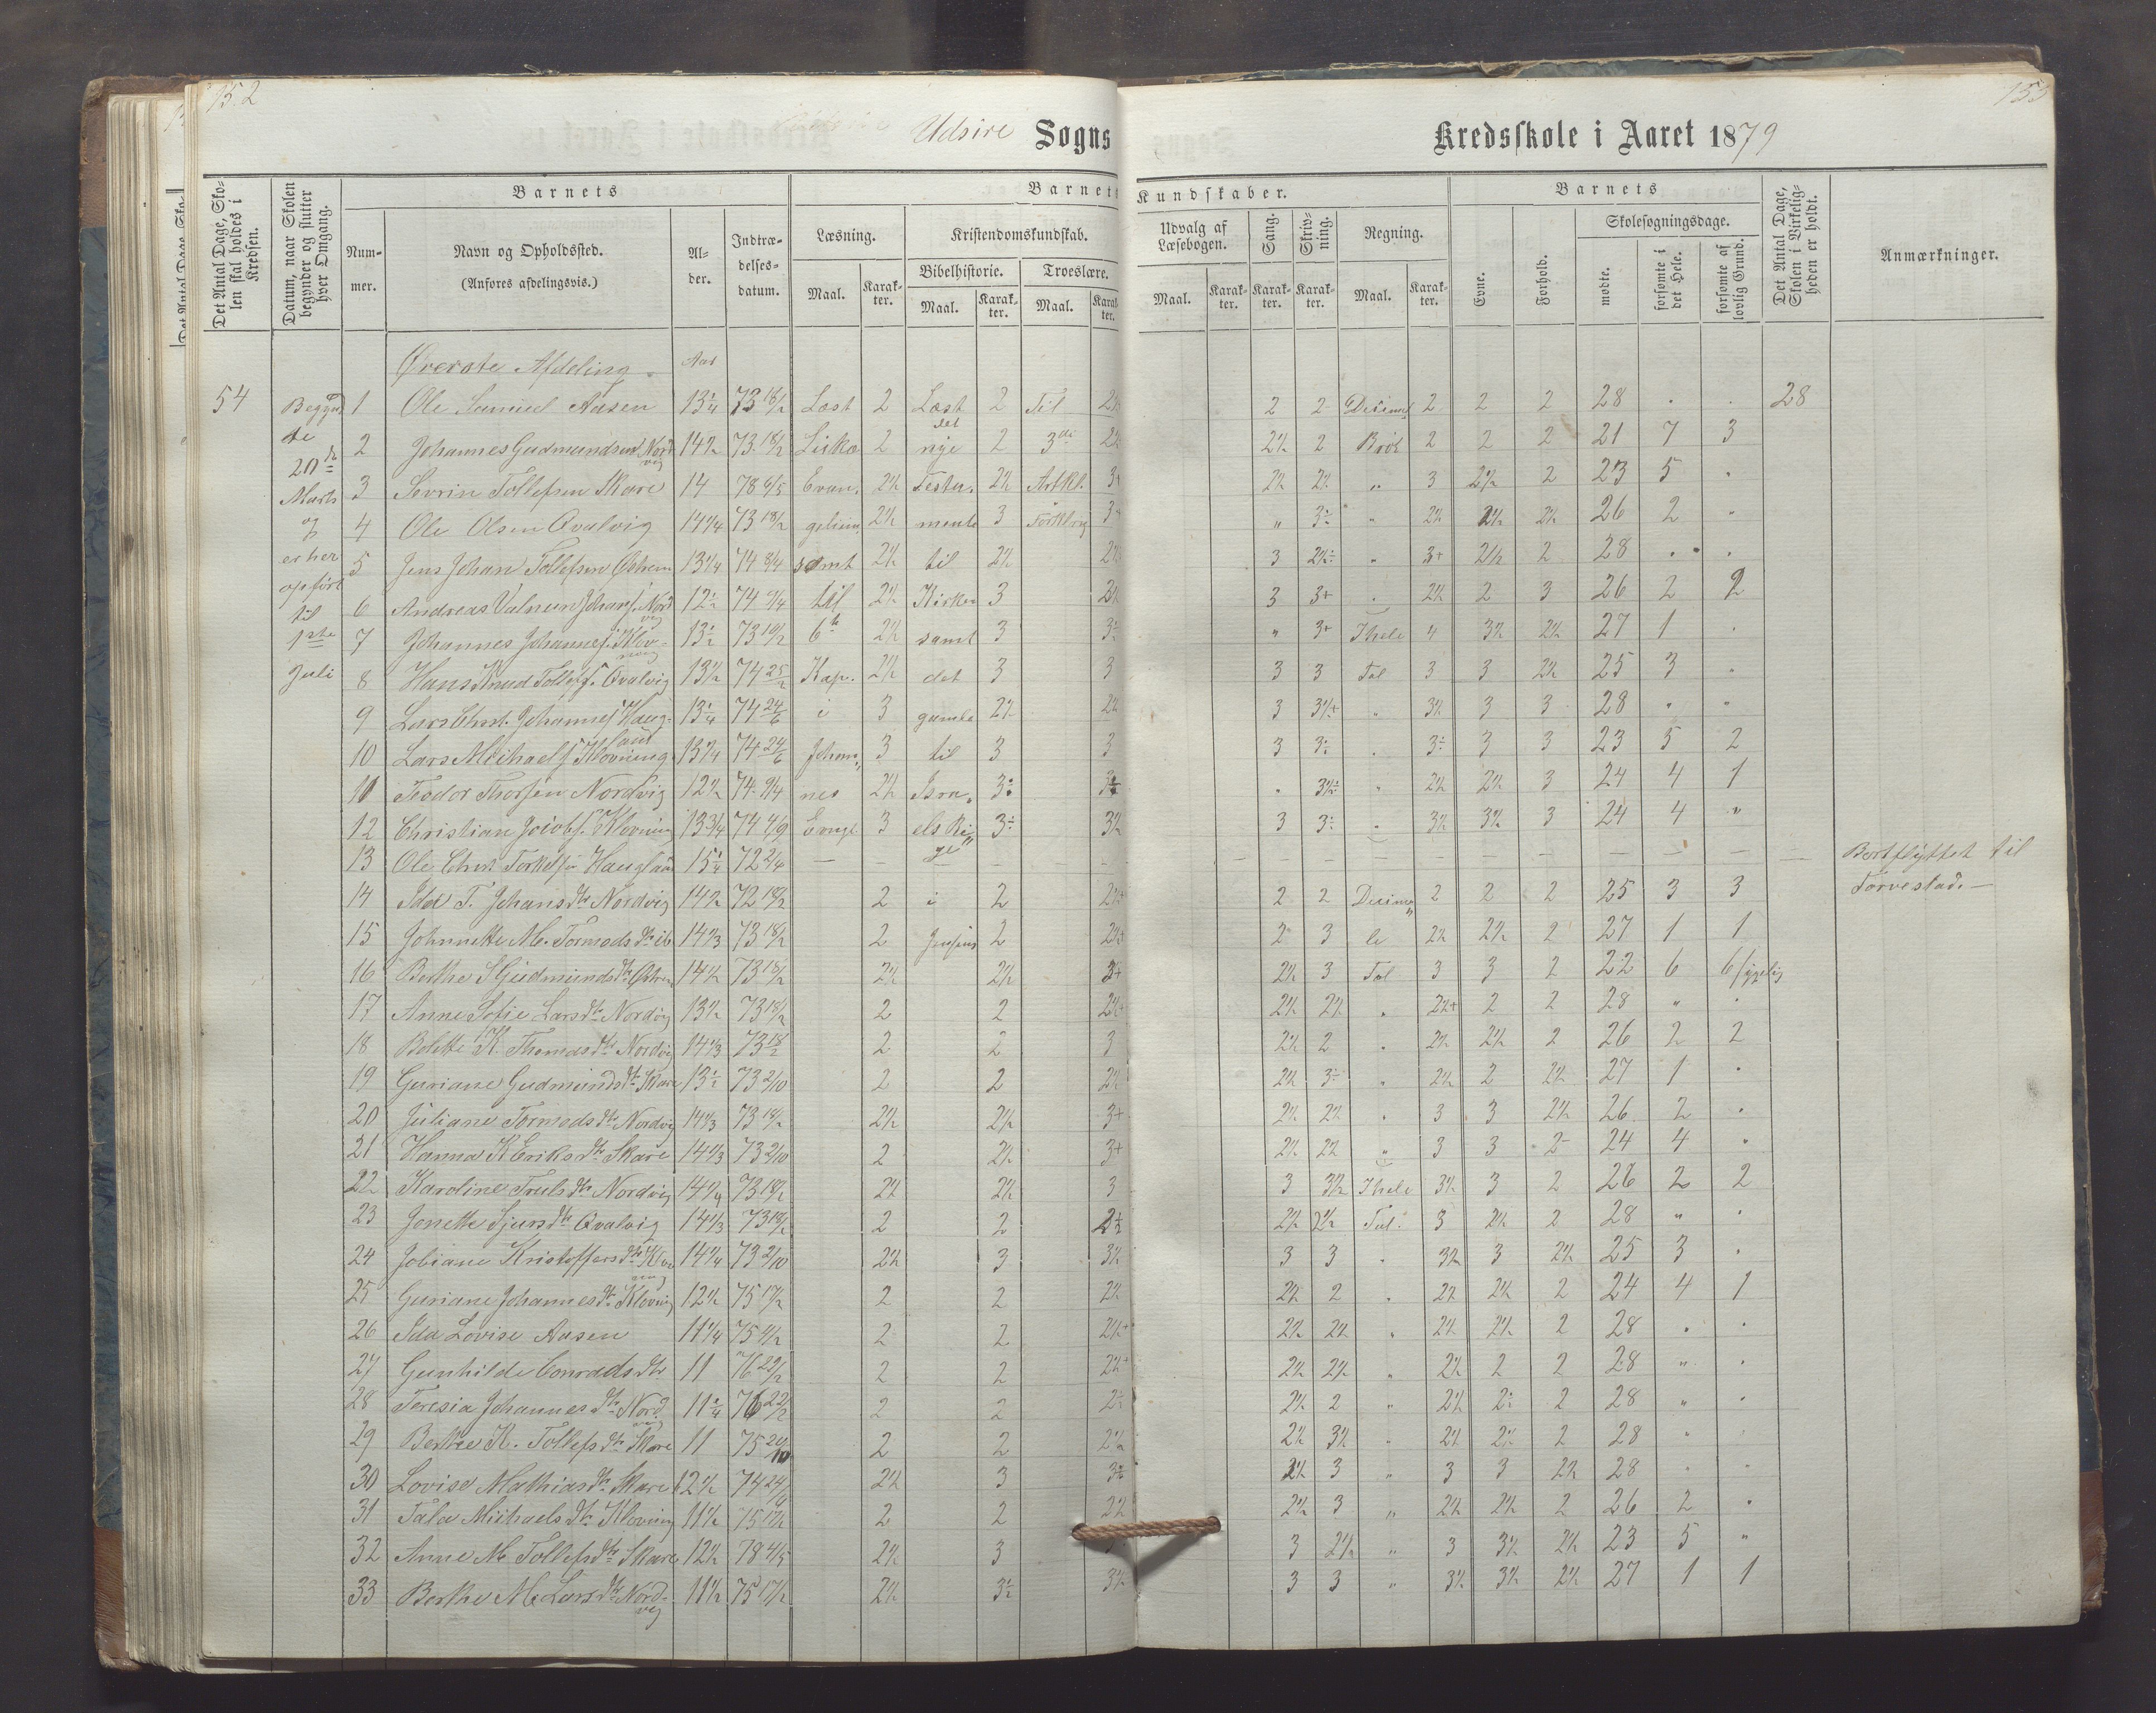 152
153
Udsire Sogns Kredsskole i Aaret 1879
Det Antal Dage, Skolen skal holdes i Kredsen.
Datum, naar Skolen begynder og slutter hver Omgang.
Barnets
Nummer.
Navn og Opholdssted.
(Anføres afdelingsvis.)
Alder.
Indtrædelsesdatum.
Barnets Kundskaber.
Læsning.
Maal. Karakter.
Kristendomskundskab.
Bibelhistorie.
Maal. Karakter.
Troeslære.
Maal. Karakter.
Udvalg af Læsebogen.
Maal. Karakter.
Sang.
Karakter.
Skrivning.
Karakter.
Regning.
Maal. Karakter.
Barnets
Evne.
Forhold.
Skolesøgningsdage.
mødte.
forsømte i det Hele.
forsømte af lovlig Grund.
Det Antal Dage, Skolen i Virkeligheden er holdt.
Anmærkninger.
Øverste Afdeling. Aar
54 1 Ole Samuel Aasen 13 1/4 73 18/2 Læst 2 Læst 2 Til 2 2 Decimal 2 2 2 28 . . 28
2 Johannes Gudmundsen Nordvig 14 1/2 73 18/2 Lukas 2 det nye 2 3die 2 1/2 2 Brøk 2 2 2 21 7 3
3 Sevrin Tollefsen Skare 14 78 6/5 Evan. 2 1/2 Testa. 2 1/2 Artkl. 2 1/2 2 1/2 " 3 2 1/2 2 23 5 .
4 Ole Olsen Qvalvig 14 1/4 73 18/2 2 1/2 mente 3 " " 2 1/2 2 1/2 26 2 "
5 Jens Johan Tollefsen Østrem 13 1/4 74 samt 2 1/2 til 2 1/2 3 " 3+ 2 1/2 2 28 . .
6 Andreas Johans. Nordvig 12 1/2 74 9/4 til 2 1/2 Kirken 3 3 3+ 2 1/2 2 3 26 2 2
7 Johannes Johannes. Klovning 13 1/2 73 6te 2 1/2 samt 3 " 3+ Thele 4 3 1/2 2 1/2 27 1 .
8 Hans Knud Tollefs. Qvalvig 13 1/2 74 25/2 Kap. 2 1/2 det 3 3 3 3 Tal 3 3 2 1/2 25 3 "
9 Lars Chrst. Johannes. Haugland 13 1/4 74 24/6 i 3 gamle 2 1/2 3 " 3 1/2 3 3 28 " "
10 Lars Michaels. Klovning 13 1/4 74 24/6 Johan" 3 til 3 3 3 3 3 23 5 2
11 Teodor Thorsen Nordvig 12 1/2 74 9/4 nes 2 1/2 Isra" " 2 1/2 2 1/2 3 24 4 1
12 Christian Jacobs. Klovning 13 3/4 74 4/9 Evngl. 3 els Ri" 3 3 1/2 3 1/2 3 24 4 "
13 Ole Chrst. Torkelsen Haugland 15 1/4 72 2/4 — — ge — — — — — — — — — — Bortflyttet til
14 Ida T. Johansdtr Nordvig 14 1/2 72 18/2 2 i 2 2 2 Decima" 2 2 2 25 3 3 Torvestad.—
15 Johnnette M. Tormodsdtr ib 14 1/3 73 18/2 2 2 2 3 le 2 1/2 2 1/2 2 27 1 1
16 Berthe S Gudmundsdtr Østrem 14 1/2 73 18/2 2 1/2 2 1/2 2 1/2 3 Tal 3 3 2 22 6 6 sygelig
17 Anne Sofie Larsdtr Nordvig 13 1/2 73 18/2 2 2 2 1/2 2 1/2 " 2 1/2+ 2 2 28 " .
18 Bolette K. Thomasdtr Nordvig 14 1/3 73 18/2 2 2 3 2 1/2 2 " 2 1/2 2 1/2 2 26 2 2
19 Guriane Gudmundsdtr Skare 13 1/2 73 2/10 2 2 2 1/2 " 2 1/2 2 2 1/2 27 1 .
20 Juliane Tormodsdtr Nordvig 14 1/3 73 18/2 2 1/2 2 1/2 3+ 2 1/2 2 1/2 " 3 3 2 1/2 26 2 .
21 Hanna K Eriksdtr Skare 14 1/3 73 2/10 2 2 1/2 3+ 2 1/2 2 1/2 " 3 3 2 24 4 "
22 Karoline Trulsdtr Nordvig 14 1/4 73 18/2 2 1/2 2 1/2 3 3 3 1/2 Thele 3 1/2 3 2 26 2 2
23 Jonette Sjursdtr Qvalvig 14 1/3 73 18/2 2 2 2 1/2 2 1/2 Tal. 3 2 1/2 2 28 " .
24 Jobiane Kristoffersdtr Klovning 14 1/4 73 2/10 2 1/2 3 3 1/2 3 3 " 3 1/2 3 2 1/2 25 3 .
25 Guriane Johannesdtr Klovning 12 1/2 75 17/2 2 2 2 1/2 2 1/2 2 " 2 1/2 2 1/2 2 24 4 1
26 Ida Lovise Aasen 11 1/4 75 2 2 2 1/2+ 2 1/2 2 1/2 " 2 1/2 2 1/2 2 28 . .
27 Gunhilde Conradsdtr 11 76 22/2 2 2 2 1/2+ 2 1/2 2 1/2 " 2 1/2 2 2 28 " .
28 Teresia Johannesdtr Nordvig 11 1/4 76 22/2 2 2 2 1/2 2 " 2 1/2 2 28 " .
29 Berthe K. Tollefsdtr Skare 11 75 2 2 2 1/2 2 1/2 3 1/2 " 2 1/2 2 1/2 2 28 "
30 Lovise Mathiasdtr Skare 12 1/2 74 2 1/2 3 2 1/2 3 " 3 3 2 1/2 28 " .
31 Tala Michaelsdtr Klovning 11 1/2 75 17/2 2 2 2 1/2 2 1/2 3 " 2 1/2 2 1/2 2 26 2 .
32 Anne M Tollefsdtr Skare 12 1/2 78 6/5 2 1/2 3 3 2 1/2 " 3 3 1/2 2 1/2 23 5 "
33 Berthe M. Larsdtr Nordvig 11 1/2 75 17/2 2 1/2 3 1/2 3 1/2 3 3 " 3 1/2 3 1/2 2 1/2 27 1 1
Begynd
te
20de
Marts
og
er her
opført
til
1ste
Juli